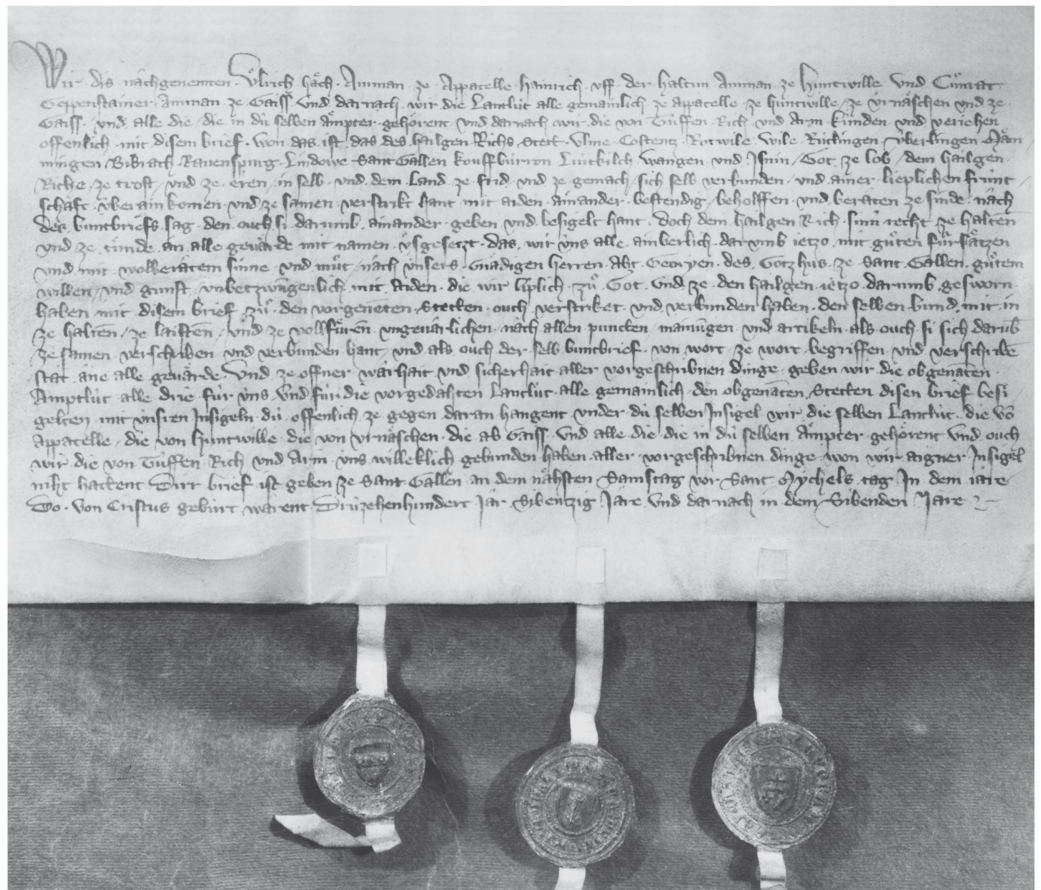 Wir dis nachgenemten Ůlrich häch Amman ze Appacelle Hainrich uff der haltun Amman ze Huntwille und Cůnrat
Geppenstainer Amman ze Gaiss und darnach wir die Lantlüt alle gemainlich ze Appacelle ze Huntwille ze Urnäschen und ze
Gaiss und alle die die in dü selben Ämpter gehörent und darnach wir die von Tüffen Rich und Arm künden und veriehen
offenlich mit disem brief won das ist das des hailgen Richs Stett Ulme Costentz Rotwile Wile Rütlingen Überlingen Mäm
mingen Bibrach Rauenspurg Lindowe Sant Gallen Kouffbürron Lütkilch Wangen und Isnin Got ze lob dem hailgen
Riche ze trost und ze eren in selb und dem Land ze frid und ze gemach sich selb verbunden und ainer lieplichen frünt
schaft überain komen und ze samen verstrikt hant mit aiden ainander bestendig beholffen und beraten ze sinde nach
des buntbriefs sag den ouch si darumb ainander geben und besigelt hant doch dem hailgen Rich sinü recht ze halten
und ze tünde an alle gevärde mit namen usgesetzt das wir uns alle ainberlich darumb ietzo mit gůten fürsätzen
und mit wolberatem sinne und můt nach ünsers gnädigen herren Abt Georyen des Gotzhus ze Sant Gallen gůtem
willen und gunst unbetzwungenlich mit Aiden die wir liplich zů Got und ze den hailgen ietzo darumb gesworn
haben mit disem brief zů den vorgeneten Stetten ouch verstriket und verbunden haben den selben bund mit in
ze halten ze laisten und ze vollfüren ungevarlichen nach allen puncten mainügen und artikeln als ouch si sich darüb
ze samen verschriben und verbunden hant und als ouch der selb buntbrief von wort ze wort begriffen und verschribē
stat ane alle gevärde Und ze offner warhait und sicherhait aller vorgeschribnen dinge geben wir die obgenāten
Amptlüt alle drie für uns und für die vorgedahten Lantlüt alle gemainlich den obgenāten Stetten disen brief besi
gelten mit ünsren Insigeln dü offenlich ze gegen daran hangent under dü selben Insigel wir die selben Lantlüt die vō
Appacelle die von Huntwille die von Urnäschen die ab Gaiss und alle die die in dü selben Ämpter gehörent und ouch
wir die von Tüffen Rich und Arm uns willeklich gebunden haben aller vorgeschribnen dinge won wir aigner Insigel
niht hattent Dirr brief ist geben ze Sant Gallen an dem nähsten Samstag vor Sant Mychels tag In dem iare
Do von Cristus gebürt warent Drüzehenhundert Jar Sibenzig Jare und darnach in dem Sibenden Jare